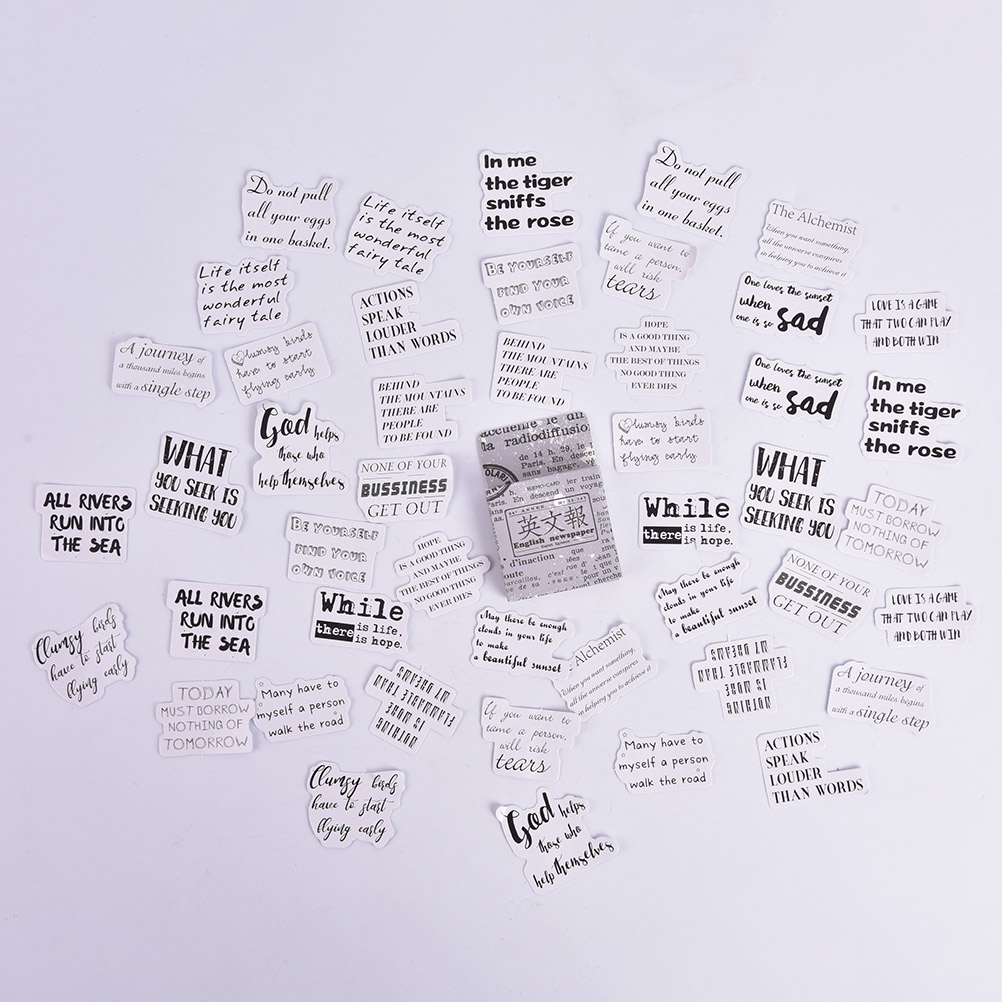 Do not pull
all your eggs
in one basket.
Life itself
is the most
wonderful
fairy tale
In me
the tiger
sniffs
the rose
Do not pull
all your eggs
in one basket.
The Alchemist
When you want something,
all the universe conspires
in helping you to achieve it
Life itself
is the most
wonderful
fairy tale
ACTIONS
SPEAK
LOUDER
THAN WORDS
BE YOURSELF
FIND YOUR
OWN VOICE
If you want to
tame a person,
will risk
tears
One loves the sunset
when
one is so sad
LOVE IS A GAME
THAT TWO CAN PLAY
AND BOTH WIN
A journey of
a thousand miles begins
with a single step
Clumsy birds
have to start
flying early
BEHIND
THE MOUNTAINS
THERE ARE
PEOPLE
TO BE FOUND
BEHIND
THE MOUNTAINS
THERE ARE
PEOPLE
TO BE FOUND
HOPE
IS A GOOD THING
AND MAYBE
THE BEST OF THINGS
NO GOOD THING
EVER DIES
One loves the sunset
when
one is so sad
In me
the tiger
sniffs
the rose
God helps
those who
help themselves
WHAT
YOU SEEK IS
SEEKING YOU
NONE OF YOUR
BUSSINESS
GET OUT
accueille le
la radiodiffusio
de 14 h. 29, le
Paris. En descend
sans bagage,
h. MEMO-CARD
Paris. En descend un voyag
英文報
English newspaper
d'inaction
oute
que
Clumsy birds
have to start
flying early
WHAT
YOU SEEK IS
SEEKING YOU
ALL RIVERS
RUN INTO
THE SEA
BE YOURSELF
FIND YOUR
OWN VOICE
HOPE
IS A GOOD THING
AND MAYBE
THE BEST OF THINGS
NO GOOD THING
EVER DIES
While
there is life.
is hope.
TODAY
MUST BORROW
NOTHING OF
TOMORROW
ALL RIVERS
RUN INTO
THE SEA
While
there is life.
is hope.
May there be enough
clouds in your life
to make
a beautiful sunset
May there be enough
clouds in your life
to make
a beautiful sunset
NONE OF YOUR
BUSSINESS
GET OUT
LOVE IS A GAME
THAT TWO CAN PLAY
AND BOTH WIN
Clumsy birds
have to start
flying early
Alchemist
When you want something,
all the universe conspires
in helping you to achieve it
TODAY
MUST BORROW
NOTHING OF
TOMORROW
Many have to
myself a person
walk the road
NOTHING
IS MORE
FLAMMABLE THAN
MY DREAMS
NOTHING
IS MORE
FLAMMABLE THAN
MY DREAMS
A journey of
a thousand miles begins
with a single step
If you want to
tame a person,
will risk
tears
Many have to
myself a person
walk the road
ACTIONS
SPEAK
LOUDER
THAN WORDS
Clumsy birds
have to start
flying early
God helps
those who
help themselves